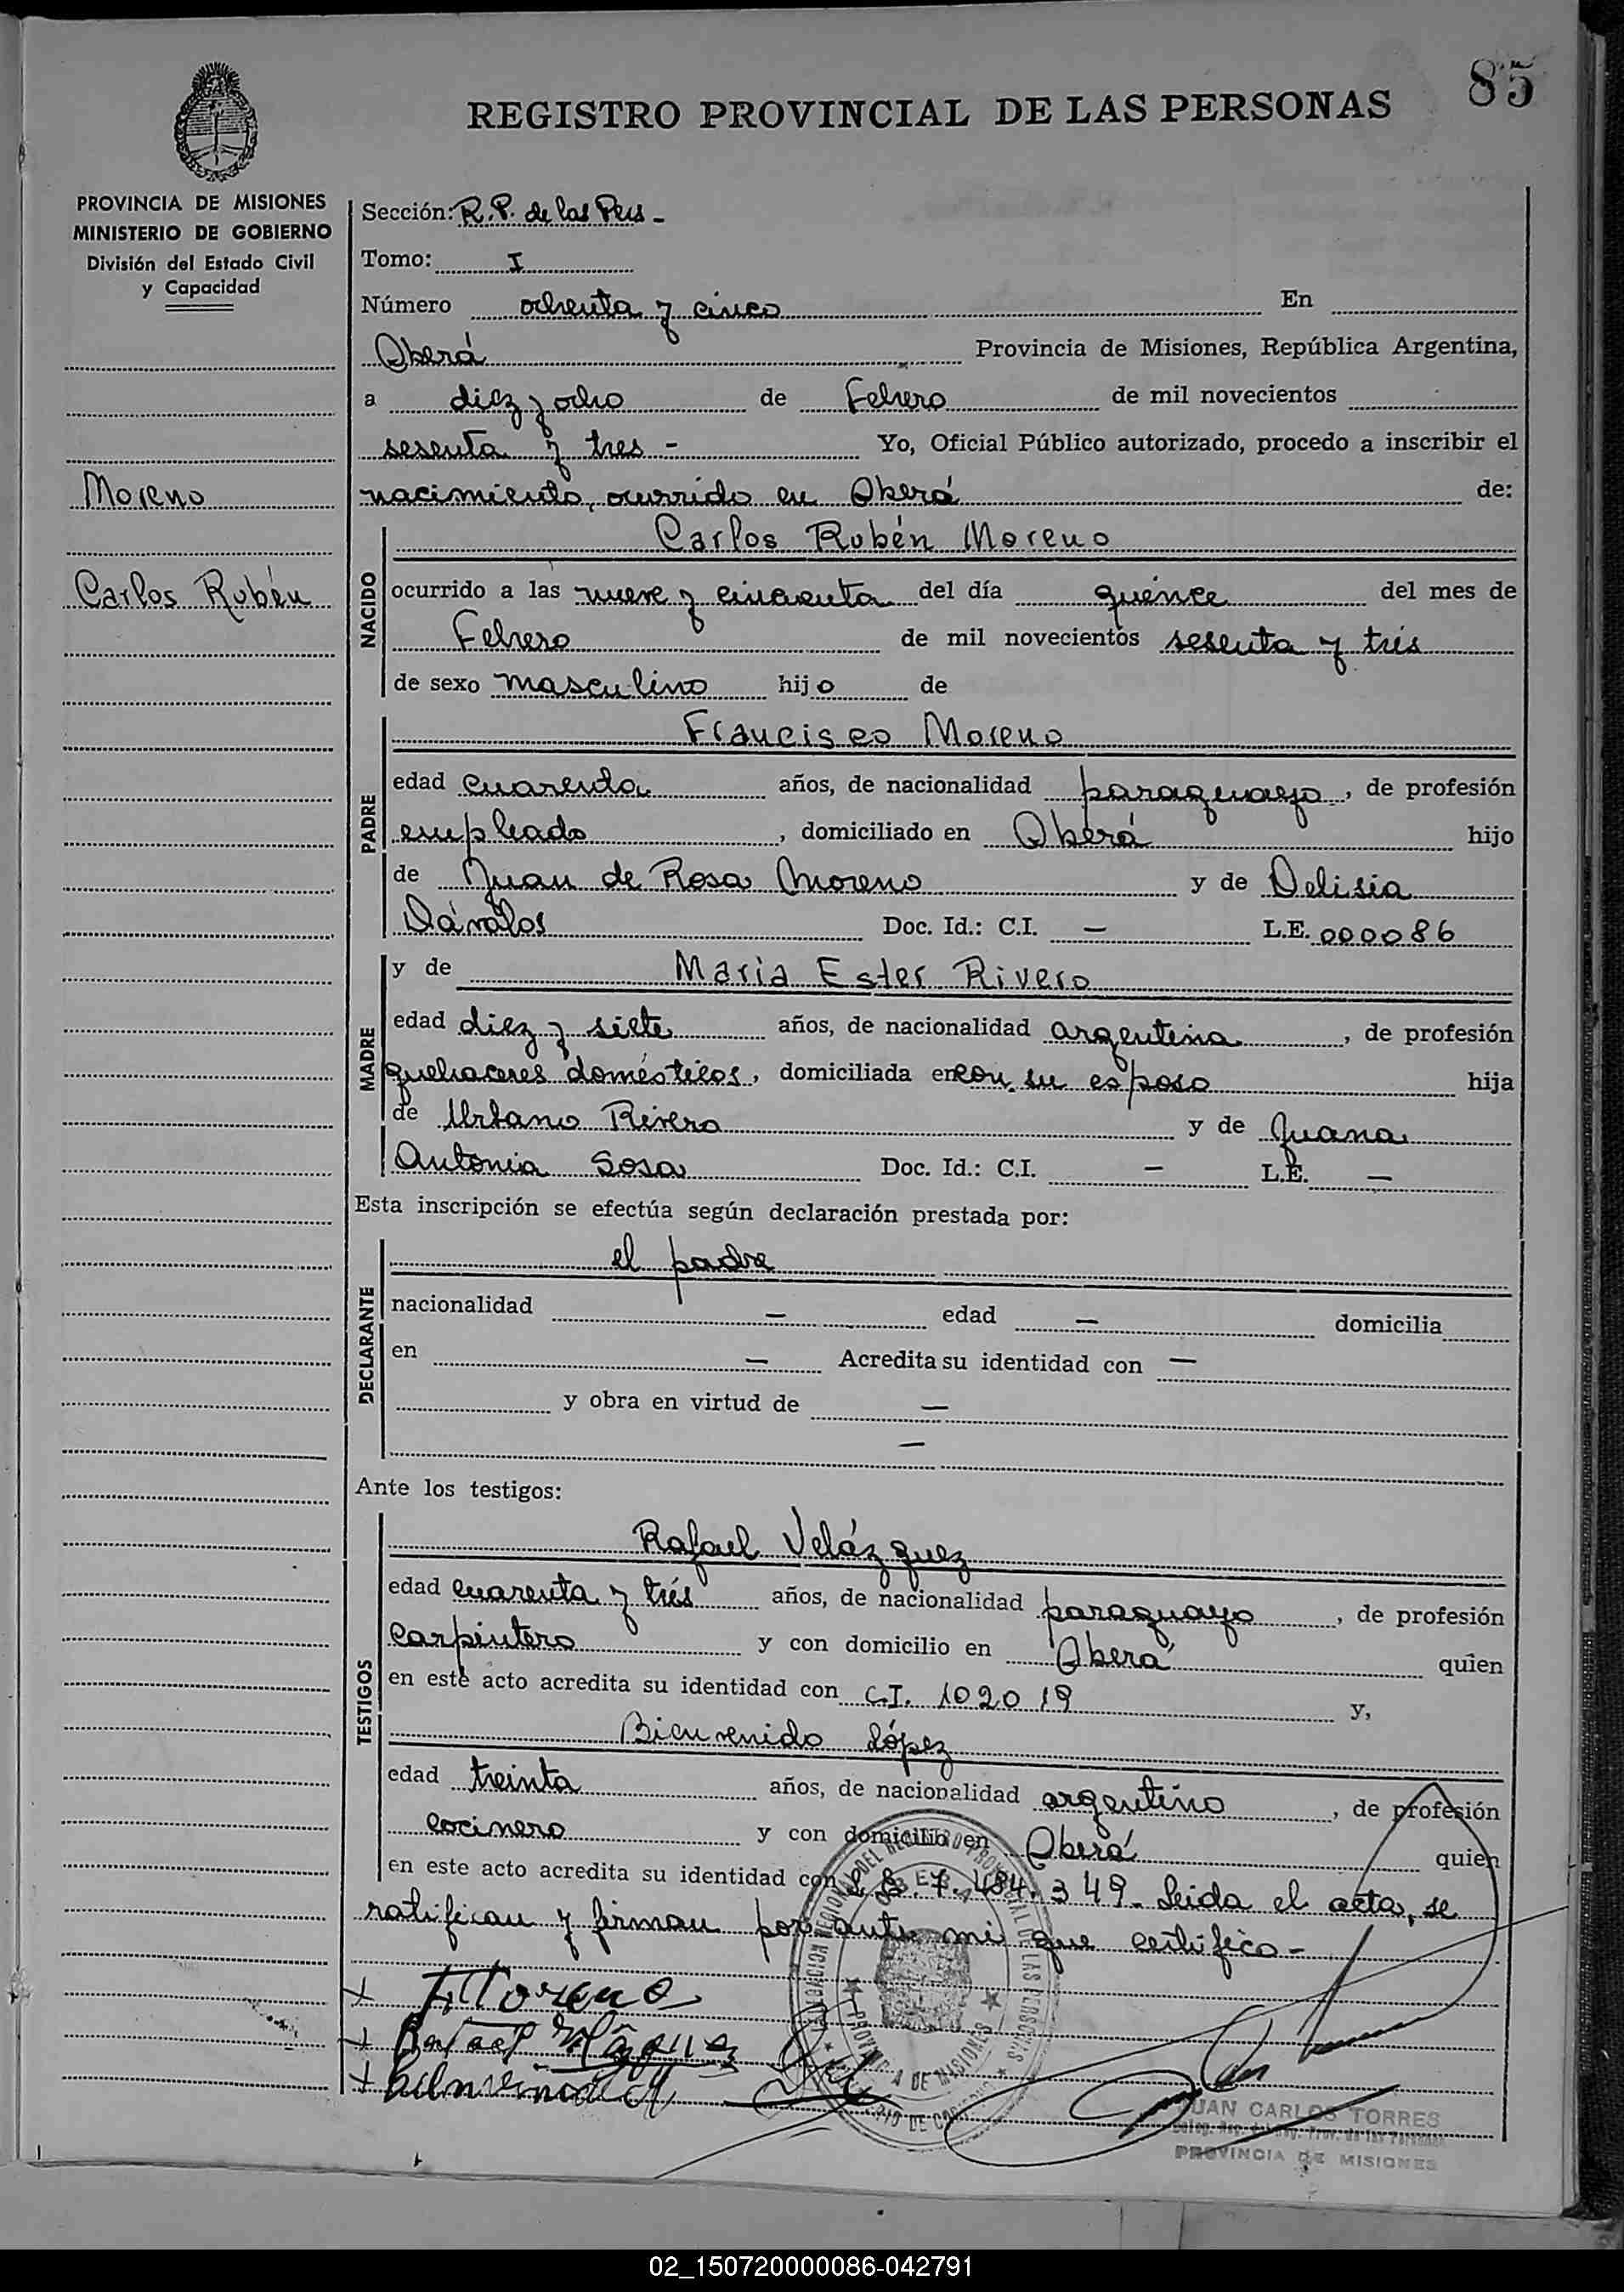 85
REGISTRO PROVINCIAL DE LAS PERSONAS
PROVINCIA DE MISIONES
MINISTERIO DE GOBIERNO
División del Estado Civil
y Capacidad
Moreno
Carlos Rubén
Sección: R.P. de las Pers -
Tomo: I
Número ochenta y cinco En
Oberá Provincia de Misiones, República Argentina,
a diez y ocho de Febrero de mil novecientos
sesenta y tres - Yo, Oficial Público autorizado, procedo a inscribir el
nacimiento, ocurrido en Oberá de:
NACIDO
Carlos Rubén Moreno
ocurrido a las nueve y cincuenta del día quince del mes de
Febrero de mil novecientos sesenta y trés
de sexo masculino hijo de
PADRE
Francisco Moreno
edad cuarenta años, de nacionalidad paraguayo, de profesión
empleado, domiciliado en Oberá hijo
de Juan de Rosa Moreno y de Delisia
Dávalos Doc. Id.: C.I. — L.E. 000086
MADRE
y de Maria Ester Rivero
edad diez y siete años, de nacionalidad argentina, de profesión
quehaceres domésticos, domiciliada en con su esposo hija
de Urbano Rivero y de Juana
Antonia Sosa Doc. Id.: C.I. — L.E. —
Esta inscripción se efectúa según declaración prestada por:
DECLARANTE
el padre
nacionalidad — edad — domicilia
en — Acredita su identidad con —
y obra en virtud de —
—
Ante los testigos:
TESTIGOS
Rafael Velázquez
edad cuarenta y trés años, de nacionalidad paraguayo, de profesión
carpintero y con domicilio en Oberá quien
en este acto acredita su identidad con C.I. 102019 y,
Bienvenido López
edad treinta años, de nacionalidad argentino, de profesión
cocinero y con domicilio en Oberá quien
en este acto acredita su identidad con L.E. 7.484.349. Leida el acta, se
ratifican y firman por ante mi que certifico -
+ FMoreno
+ Rafael
+
OBERA
PROVINCIA DE MISIONES
JUAN CARLOS TORRES
PROVINCIA DE MISIONES
02_150720000086-042791